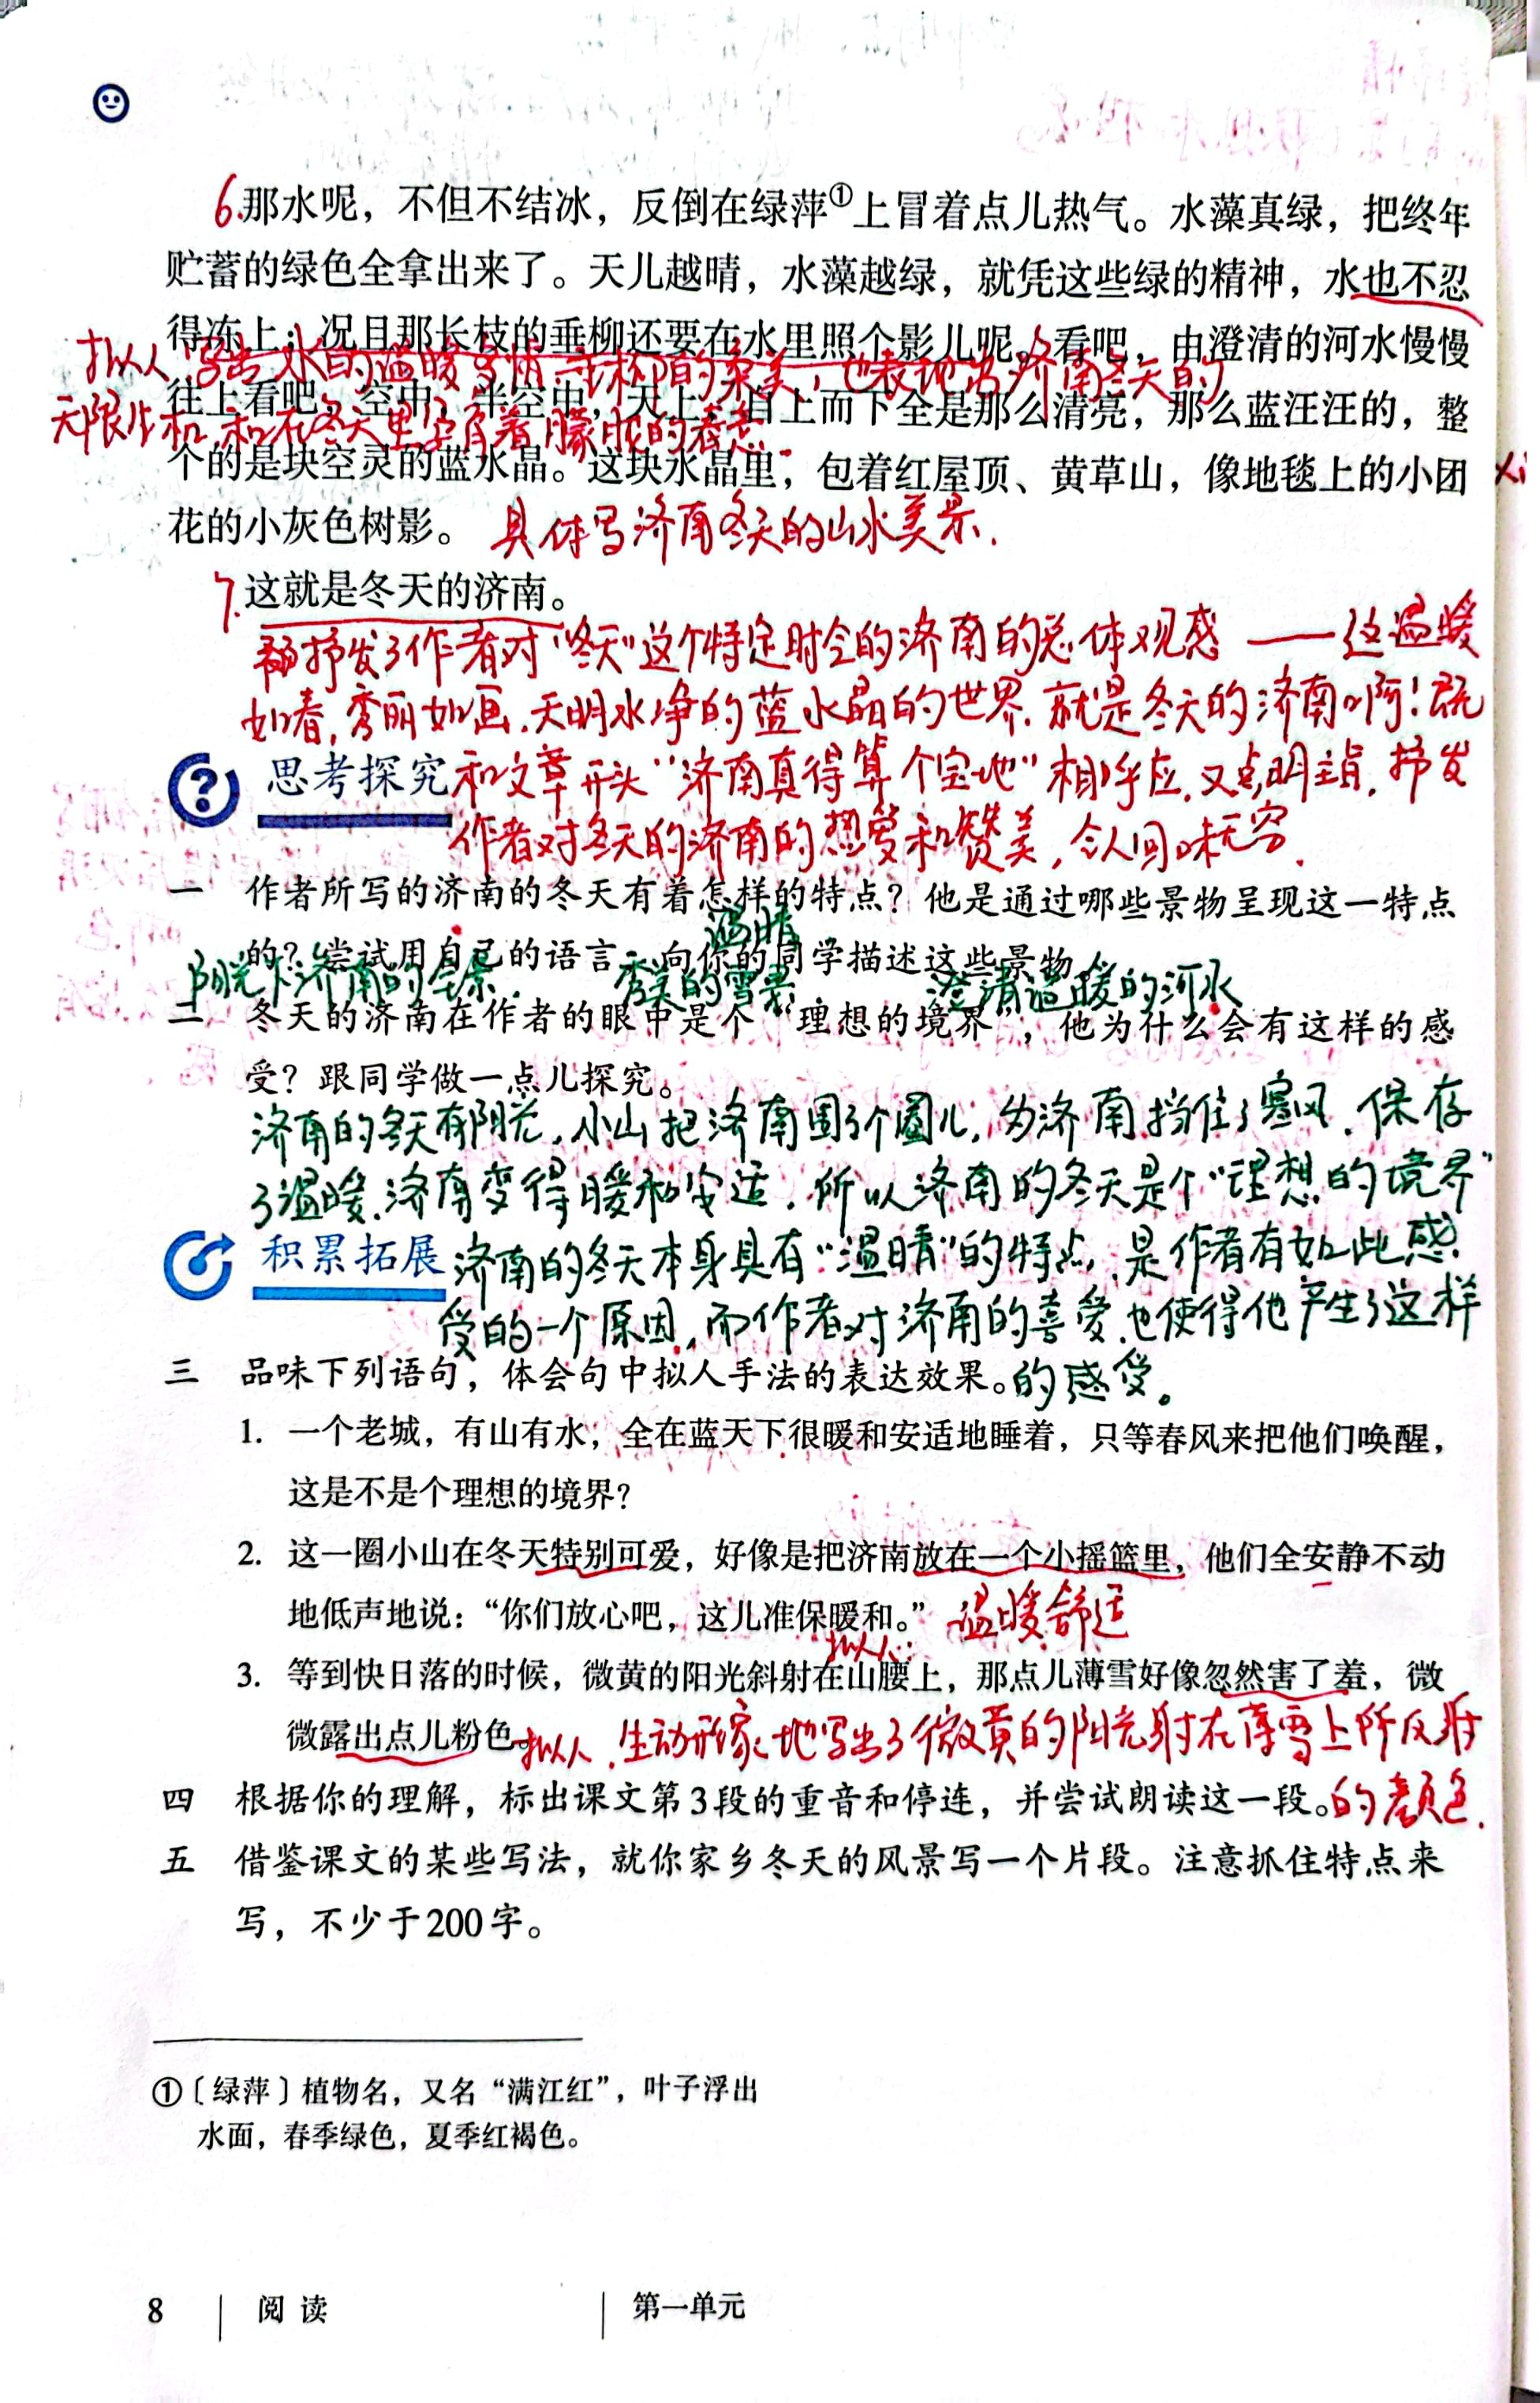 6.那水呢，不但不结冰，反倒在绿萍①上冒着点儿热气。水藻真绿，把终年
贮蓄的绿色全拿出来了。天儿越晴，水藻越绿，就凭这些绿的精神，水也不忍
得冻上；况且那长枝的垂柳还要在水里照个影儿呢。看吧，由澄清的河水慢慢
拟人 写出水的温暖多情 垂柳的柔美，也表现出济南冬天的
往上看吧，空中，半空中，天上，自上而下全是那么清亮，那么蓝汪汪的，整
无限生机 和在冬天里孕育着朦胧的春意.
个的是块空灵的蓝水晶。这块水晶里，包着红屋顶、黄草山，像地毯上的小团
花的小灰色树影。 具体写济南冬天的山水美景.
7.这就是冬天的济南。
抒发了作者对“冬天”这个特定时令的济南的总体观感 ——这温暖
如春,秀丽如画.天明水净的蓝水晶的世界.就是冬天的济南啊!既
思考探究 和文章开头“济南真得算个宝地”相呼应.又点明主旨.抒发
作者对冬天的济南的热爱和赞美,令人回味无穷.
一 作者所写的济南的冬天有着怎样的特点？他是通过哪些景物呈现这一特点
温晴
的？尝试用自己的语言，向你的同学描述这些景物。
阳光下济南的全景. 秀美的雪景 澄清温暖的河水
二 冬天的济南在作者的眼中是个“理想的境界”，他为什么会有这样的感
受？跟同学做一点儿探究。
济南的冬天有阳光,小山把济南围了个圈儿,为济南挡住了寒风.保存
了温暖.济南变得暖和安适.所以济南的冬天是个“理想的境界”
积累拓展 济南的冬天本身具有“温晴”的特点,是作者有如此感
受的一个原因,而作者对济南的喜爱也使得他产生了这样
三 品味下列语句，体会句中拟人手法的表达效果。的感受。
1. 一个老城，有山有水，全在蓝天下很暖和安适地睡着，只等春风来把他们唤醒，
这是不是个理想的境界？
2. 这一圈小山在冬天特别可爱，好像是把济南放在一个小摇篮里，他们全安静不动
地低声地说：“你们放心吧，这儿准保暖和。” 温暖舒适
拟人:
3. 等到快日落的时候，微黄的阳光斜射在山腰上，那点儿薄雪好像忽然害了羞，微
微露出点儿粉色。拟人.生动形象地写出了微黄的阳光射在薄雪上所反射
四 根据你的理解，标出课文第3段的重音和停连，并尝试朗读这一段。的颜色.
五 借鉴课文的某些写法，就你家乡冬天的风景写一个片段。注意抓住特点来
写，不少于200字。
①〔绿萍〕植物名，又名“满江红”，叶子浮出
水面，春季绿色，夏季红褐色。
8 阅读 第一单元